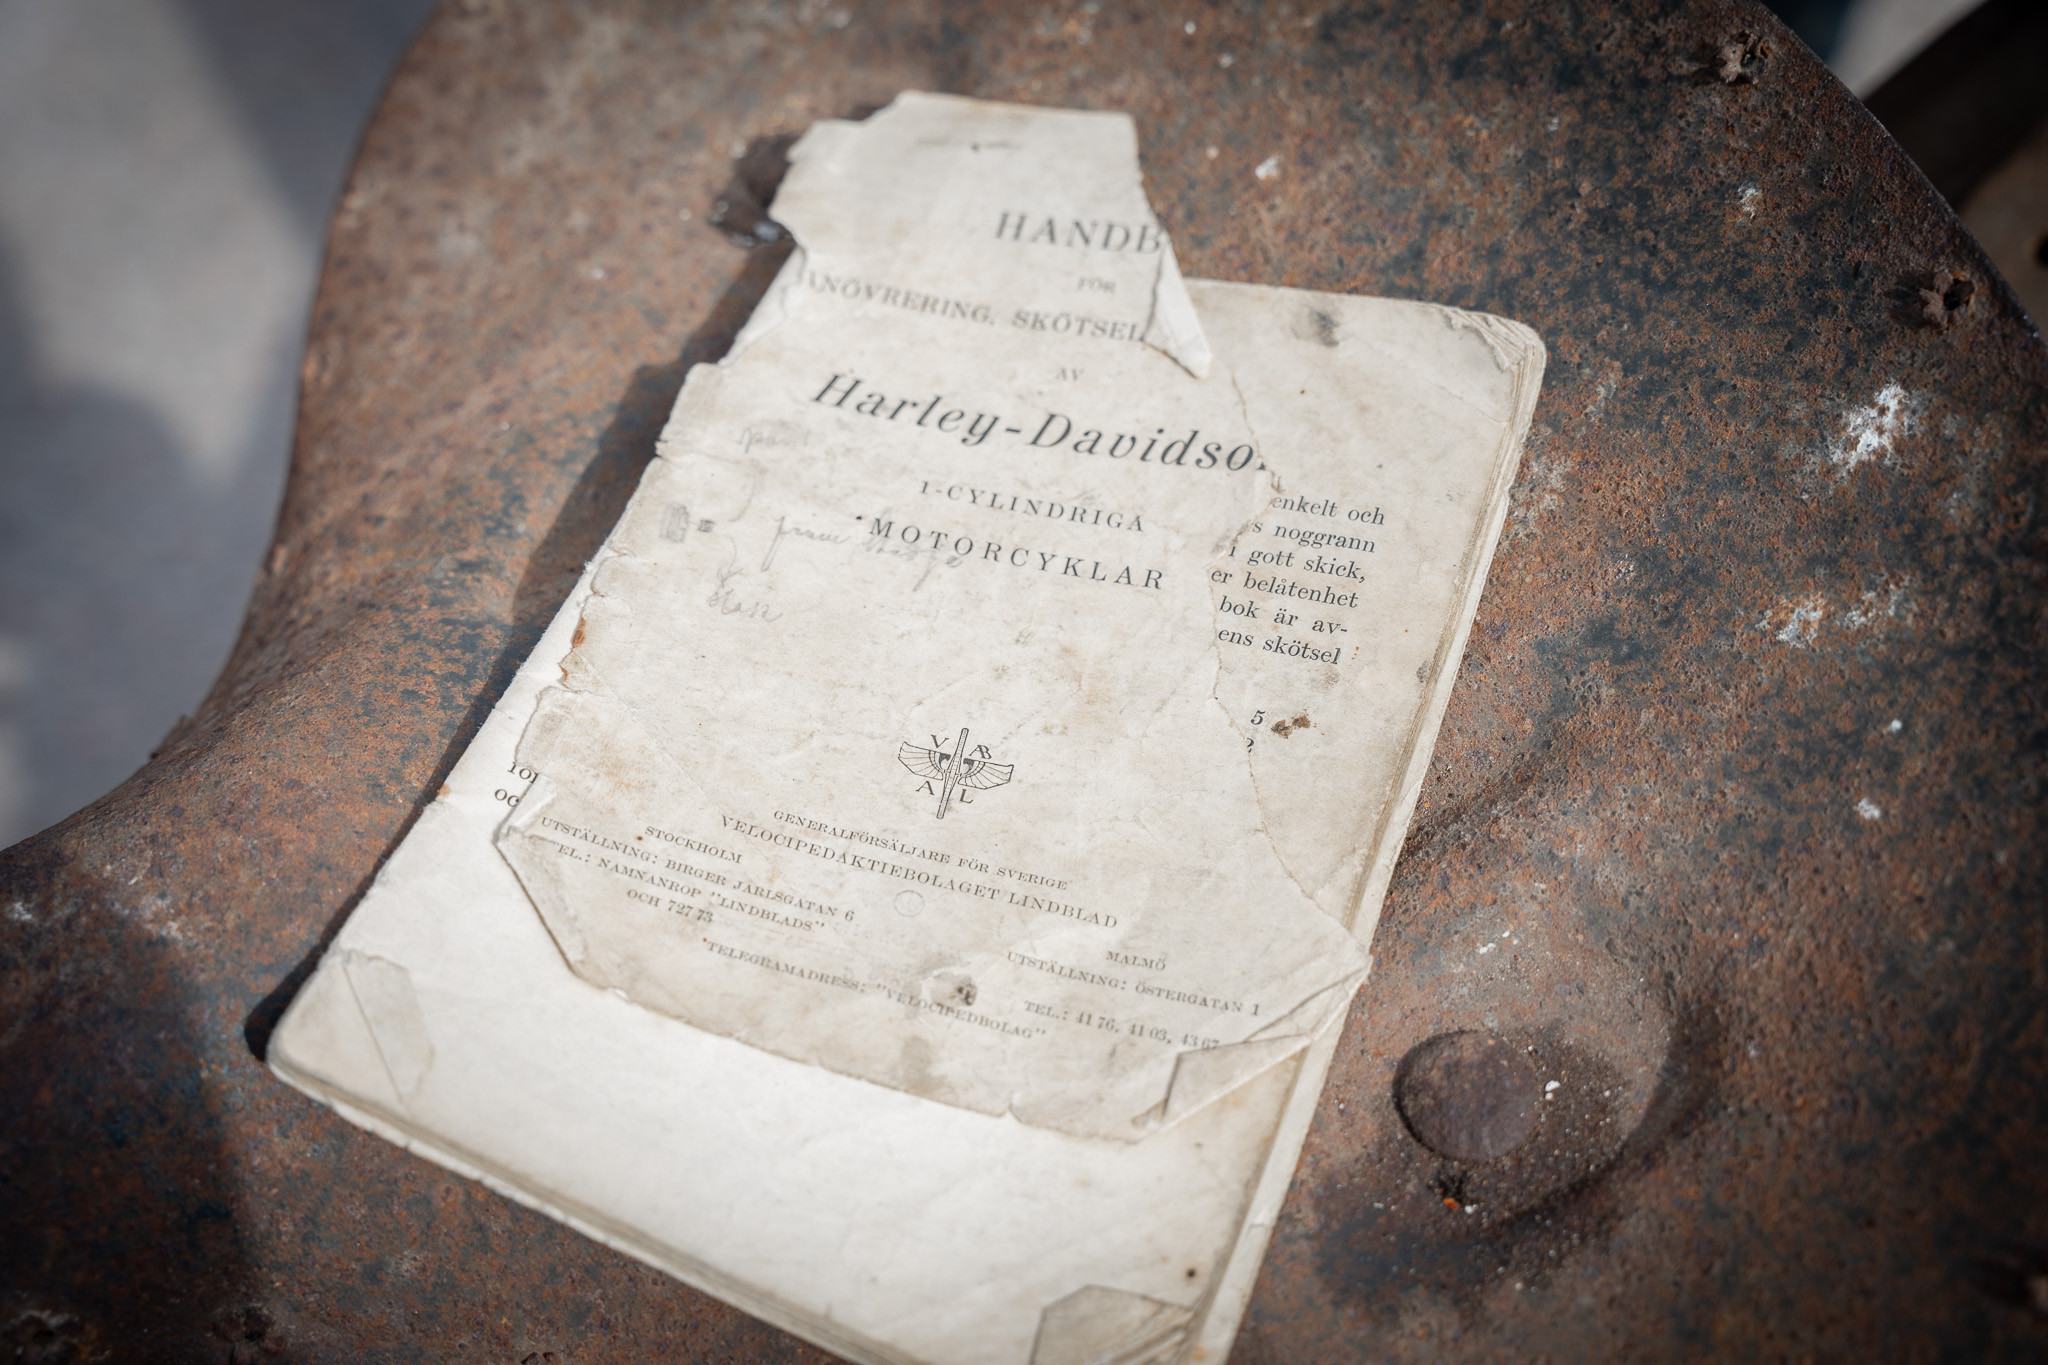 HANDB
FÖR
ANÖVRERING, SKÖTSEL
AV
Harley-Davidso
1-CYLINDRIGA
MOTORCYKLAR
enkelt och
s noggrann
i gott skick,
er belåtenhet
bok är av-
ens skötsel
5
2
V AB
A L
GENERALFÖRSÄLJARE FÖR SVERIGE
VELOCIPEDAKTIEBOLAGET LINDBLAD
STOCKHOLM
UTSTÄLLNING: BIRGER JARLSGATAN 6
EL.: NAMNANROP "LINDBLADS"
OCH 727 73
MALMÖ
UTSTÄLLNING: ÖSTERGATAN 1
TEL.: 41 76, 41 03, 43 67
TELEGRAMADRESS: "VELOCIPEDBOLAG"